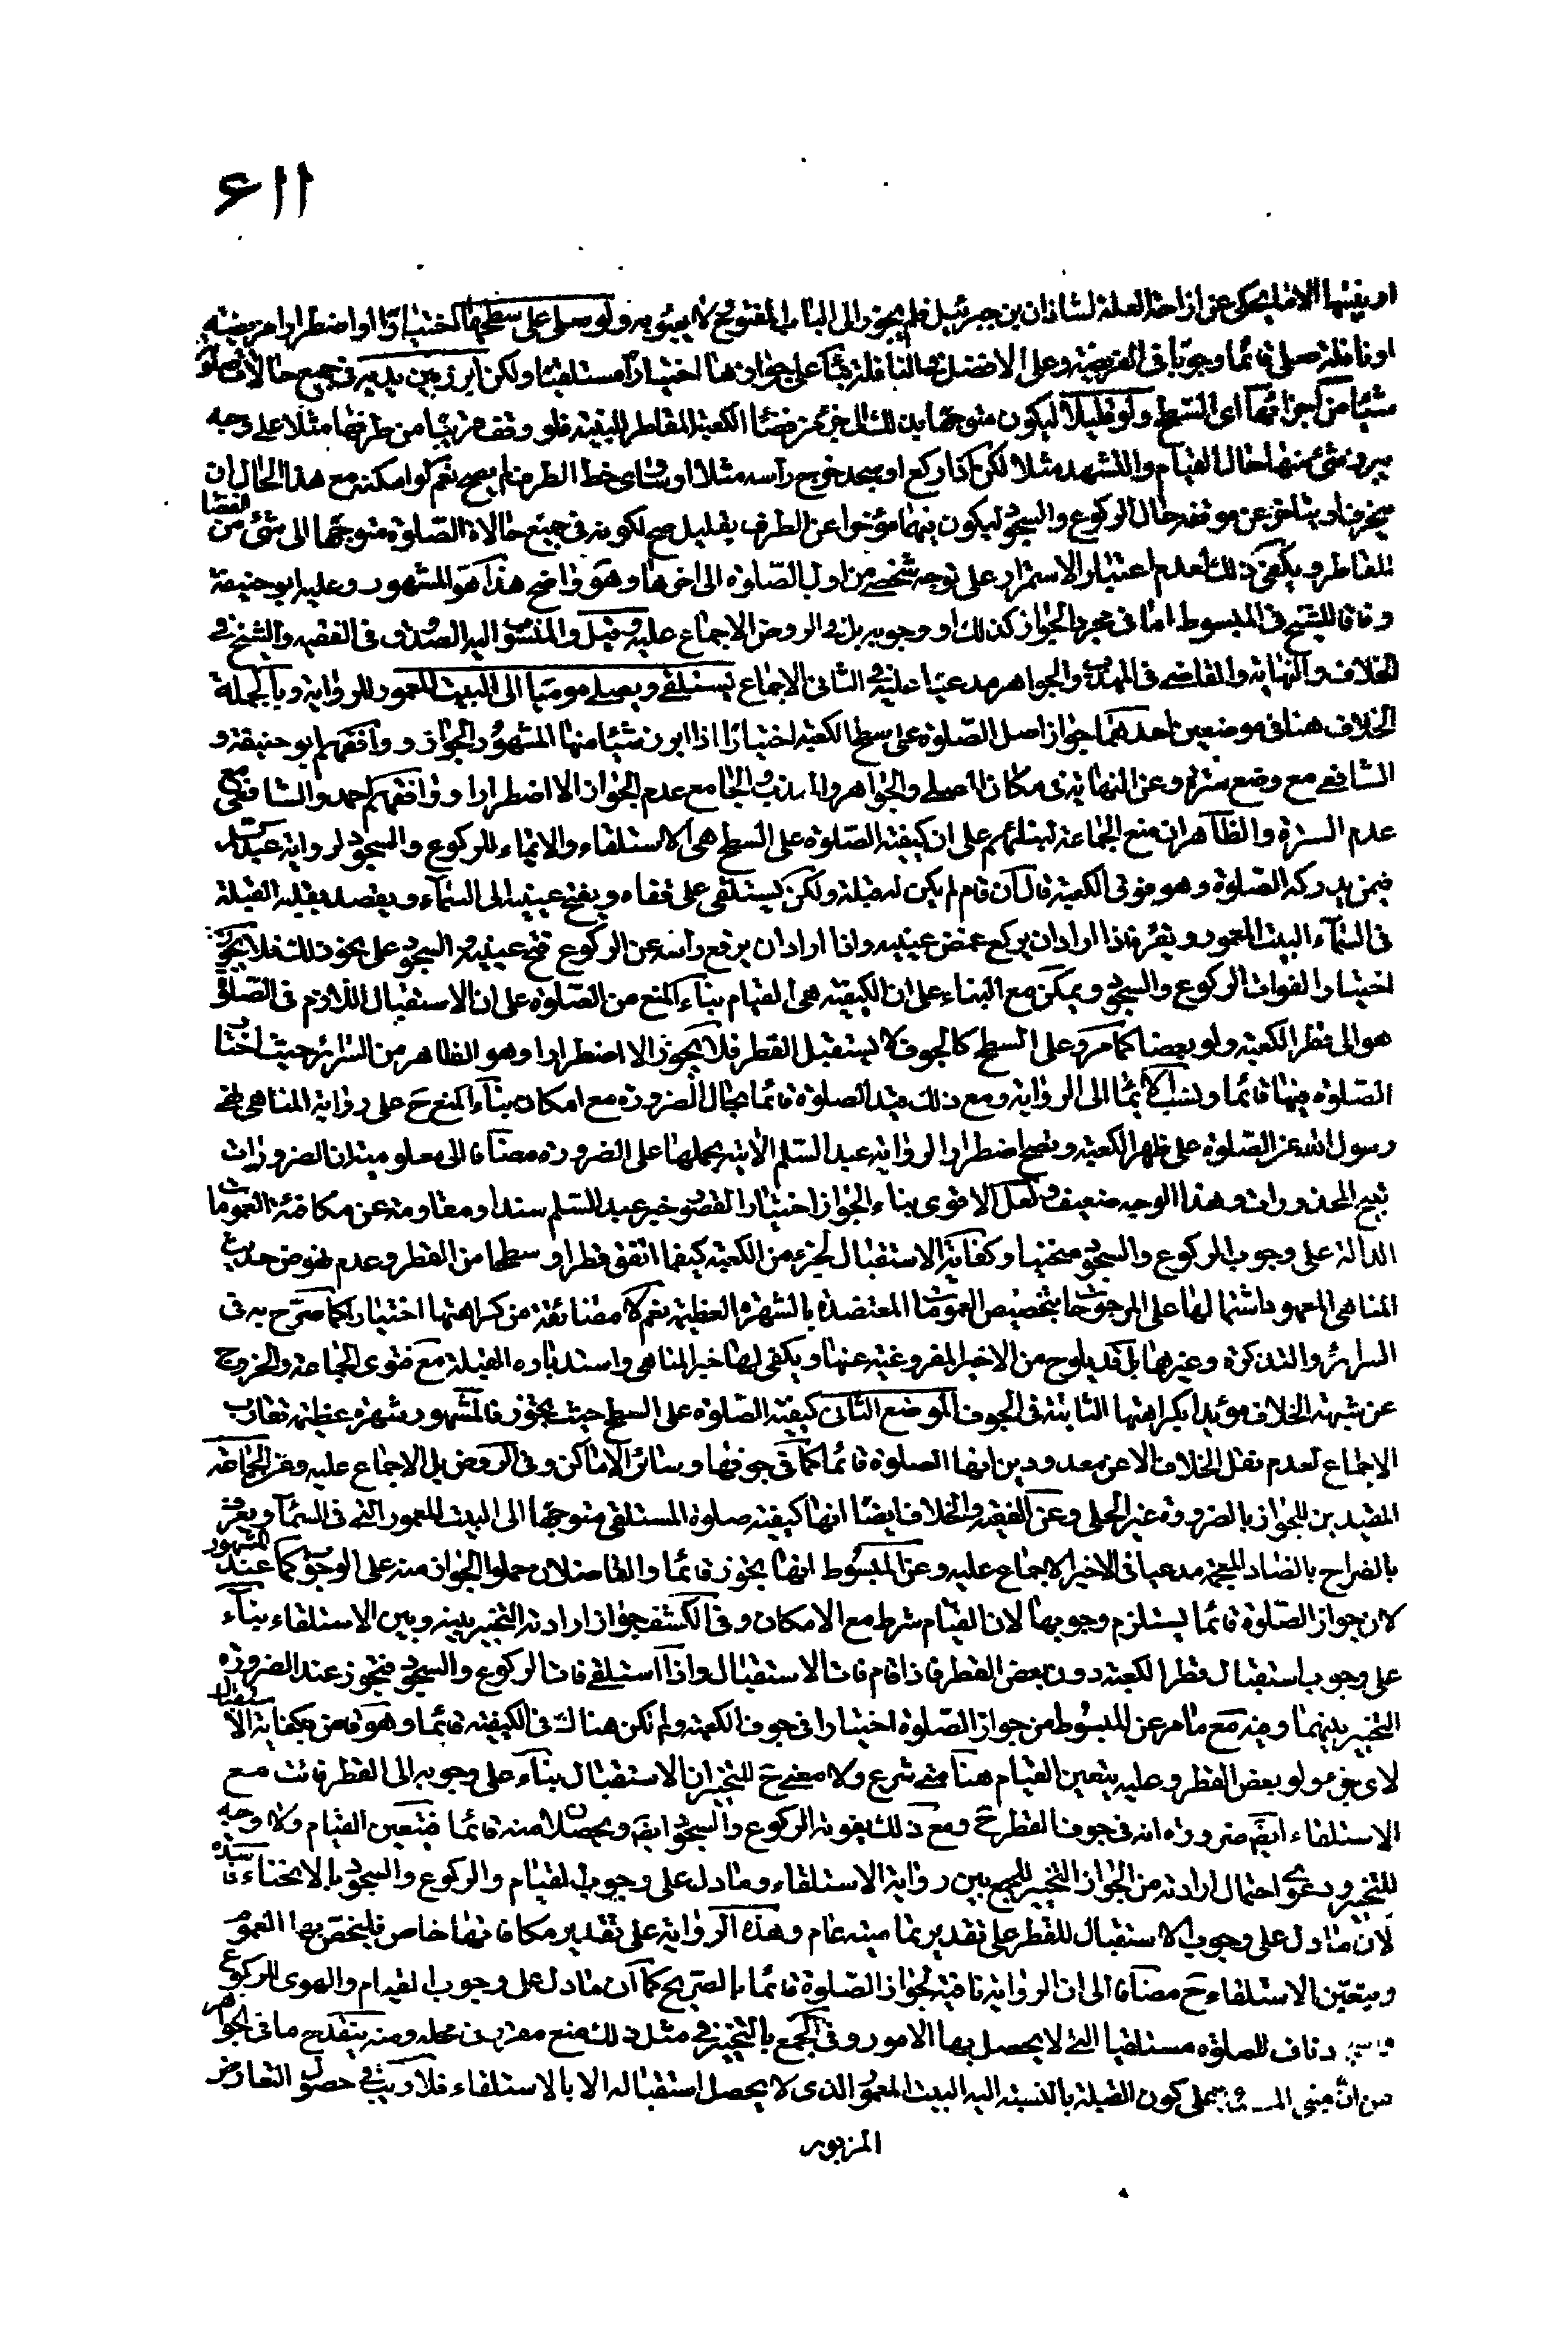 ۶۱۱
او نافلة صلى قائما وجوبا فى الفريضة وعلى الافضل فى النافلة بناء على جوازها اختيارا مستلقيا ولكن ابرز بين يديه فى جميع حالات صلوته
شيئا من اجزائها اى السطح ولو قليلا ليكون متوجها بذلك الى جزء من فضاء الكعبة المقاطر للبقية فلو وقف قريبا من طرفها مثلا على وجه
يبرز شئ منها حال القيام والتشهد مثلا لكن اذا ركع او سجد خرج راسه مثلا او ساوى خط الطرف لم يصح نعم لو امكنه مع هذا الحال ان
او يتاخر عن موقفه حال الركوع والسجود ليكون فيهما مؤخرا عن الطرف بقليل صح لكونه فى جميع حالاة الصلوة متوجها الى شئ من الفضاء
المقاطر ويكفى ذلك لعدم اعتبار الاستمرار على توجه شخصى من اول الصلوة الى اخرها وهو واضح هذا هو المشهور وعليه ابو حنيفة
وفاقا للشيخ فى المبسوط اما فى مجرد الجواز كذلك او وجوبه بل فى الروض الاجماع عليه وقيل والمنسوب اليه الصدوق فى الفقيه والشيخ فى
الخلاف والنهاية والقاضى فى المهذب والجواهر مدعيا عليه فى الثانى الاجماع يستلقى ويصلى موميا الى البيت المعمور للرواية وبالجملة
الخلاف هنا فى موضعين احدهما جواز اصل الصلوة على سطح الكعبة اختيارا اذا ابرز شيئا منها المشهور الجواز ووافقهم ابو حنيفة و
الشافعى مع وضع سترة وعن النهاية فى مكان المصلى والجواهر والمهذب والجامع عدم الجواز الا اضطرارا ووافقهم احمد والشافعى مع
عدم السترة والظاهر ان منع الجماعة لبنائهم على ان كيفية الصلوة على السطح هى الاستلقاء والايماء للركوع والسجود لرواية عبد السلم
فيمن يدركه الصلوة وهو فوق الكعبة قال ان قام لم يكن له قبلة ولكن يستلقى على قفاه ويفتح عينيه الى السماء ويقصد بقلبه القبلة
فى السماء البيت المعمور ويقرء فاذا اراد ان يركع غمض عينيه واذا اراد ان يرفع راسه عن الركوع فتح عينيه والسجود على نحو ذلك فلا يجوز
اختيارا لفوات الركوع والسجود ويمكن مع البناء على ان الكيفية هى القيام بناء المنع من الصلوة على ان الاستقبال اللازم فى الصلوة
هو الى قطر الكعبة ولو بعضا كما مر وعلى السطح كالجوف لا يستقبل القطر فلا يجوز الا اضطرارا وهو الظاهر من السرائر حيث اختار
الصلوة فيها قائما ونسب الايماء الى الرواية ومع ذلك قيد الصلوة قائما بحال الضرورة مع امكان بناء المنع ح على رواية المناهى نهى
رسول الله عن الصلوة على ظهر الكعبة ويصح اضطرارا لرواية عبد السلم الاتية بحملها على الضرورة مضافا الى معلومية ان الضرورات
تبيح المحذورات وهذا الوجه ضعيف ولعل الاقوى بناء الجواز اختيارا لقصور خبر عبد السلم سندا ومقاومة عن مكافئة العمومات
الدالة على وجوب الركوع والسجود منحنيا وكفاية الاستقبال لجزء من الكعبة كيفما اتفق قطرا او سطحا من القطر وعدم نهوض حديث
المناهى المعهود باشتمالها على المرجوحات بتخصيص العمومات المعتضدة بالشهرة العظيمة نعم لا مضائقة من كراهتها اختيارا كما صرح به فى
السرائر والتذكرة وغيرها بل قد يلوح من الاخير المفروغية عنها ويكفى لها خبر المناهى واستدباره القبلة مع فتوى الجماعة والخروج
عن شبهة الخلاف مؤيدا بكراهتها الثابتة فى الجوف الموضع الثانى كيفية الصلوة على السطح حيث يجوز فالمشهور شهرة عظيمة تقارب
الاجماع لعدم نقل الخلاف الا عن معدودين انها الصلوة قائما كما فى جوفها وسائر الاماكن وفى الروض بل الاجماع عليه وعن الجماعة
المقيدين للجواز بالضرورة غير الحلى وعن الفقيه والخلاف ايضا انها كيفية صلوة المستلقى متوجها الى البيت المعمور التى فى السماء ويعرف
بالضراح بالضاد المعجمة مدعيا فى الاخير الاجماع عليه وعن المبسوط انها يجوز قائما والفاضلان حملوا الجواز منه على الوجوب كما عند المشهور
لان جواز الصلوة قائما يستلزم وجوبها لان القيام شرط مع الامكان وفى الكشف جواز ارادته التخيير بينه وبين الاستلقاء بناء
على وجوب استقبال قطر الكعبة دون بعض القطر فاذا قام فات الاستقبال واذا استلقى فات الركوع والسجود فيتخير عند الضرورة
التخيير بينهما وفيه مع ما مر عن المبسوط من جواز الصلوة اختيارا فى جوف الكعبة ولم تكن هناك فى الكيفية قائما وهو قاض بكفاية الاستقبال
لاى جزء ولو بعض القطر وعليه يتعين القيام هنا متى شرع ولا معنى ح للتخيير ان الاستقبال بناء على وجوبه الى القطر فائت مع
الاستلقاء ايضا ضرورة انه فى جوف القطر ح ومع ذلك يفوته الركوع والسجود ايضا ويحصلان منه قائما فيتعين القيام ولا وجه
للتخيير ودعوى احتمال ارادته من الجواز التخيير للجمع بين رواية الاستلقاء وما دل على وجوب القيام والركوع والسجود بالانحناء فاسدة
لان ما دل على وجوب الاستقبال للقطر على تقدير تماميته عام وهذه الرواية على تقدير مكافاتها خاص فليخص بها العموم
ويتعين الاستلقاء ح مضافا الى ان الرواية نافية لجواز الصلوة قائما بالصريح كما ان ما دل على وجوب القيام والهوى للركوع
مناف للصلوة مستلقيا التى لا يحصل بها الامور وفى الجمع بالتخيير فى مثل ذلك منع مقرر فى محله ومنه ينقدح ما فى الجواهر
من ان مبنى على كون القبلة بالنسبة اليه البيت المعمور الذى لا يحصل استقباله الا بالاستلقاء فلا ريب فى حصول التعارض
المزبور